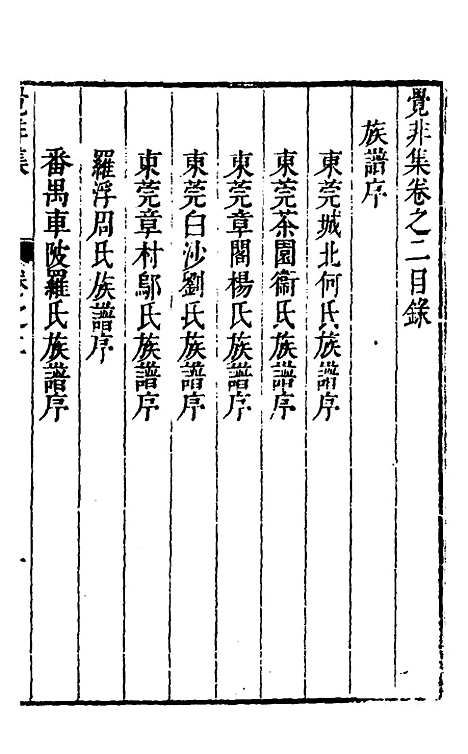 覺非集卷之二目錄
族譜序
東莞城北何氏族譜序
東莞茶園衞氏族譜序
東莞章閣楊氏族譜序
東莞白沙劉氏族譜序
東莞章村鄔氏族譜序
羅浮周氏族譜序
番禺車陂羅氏族譜序
覺非集
卷之二
一